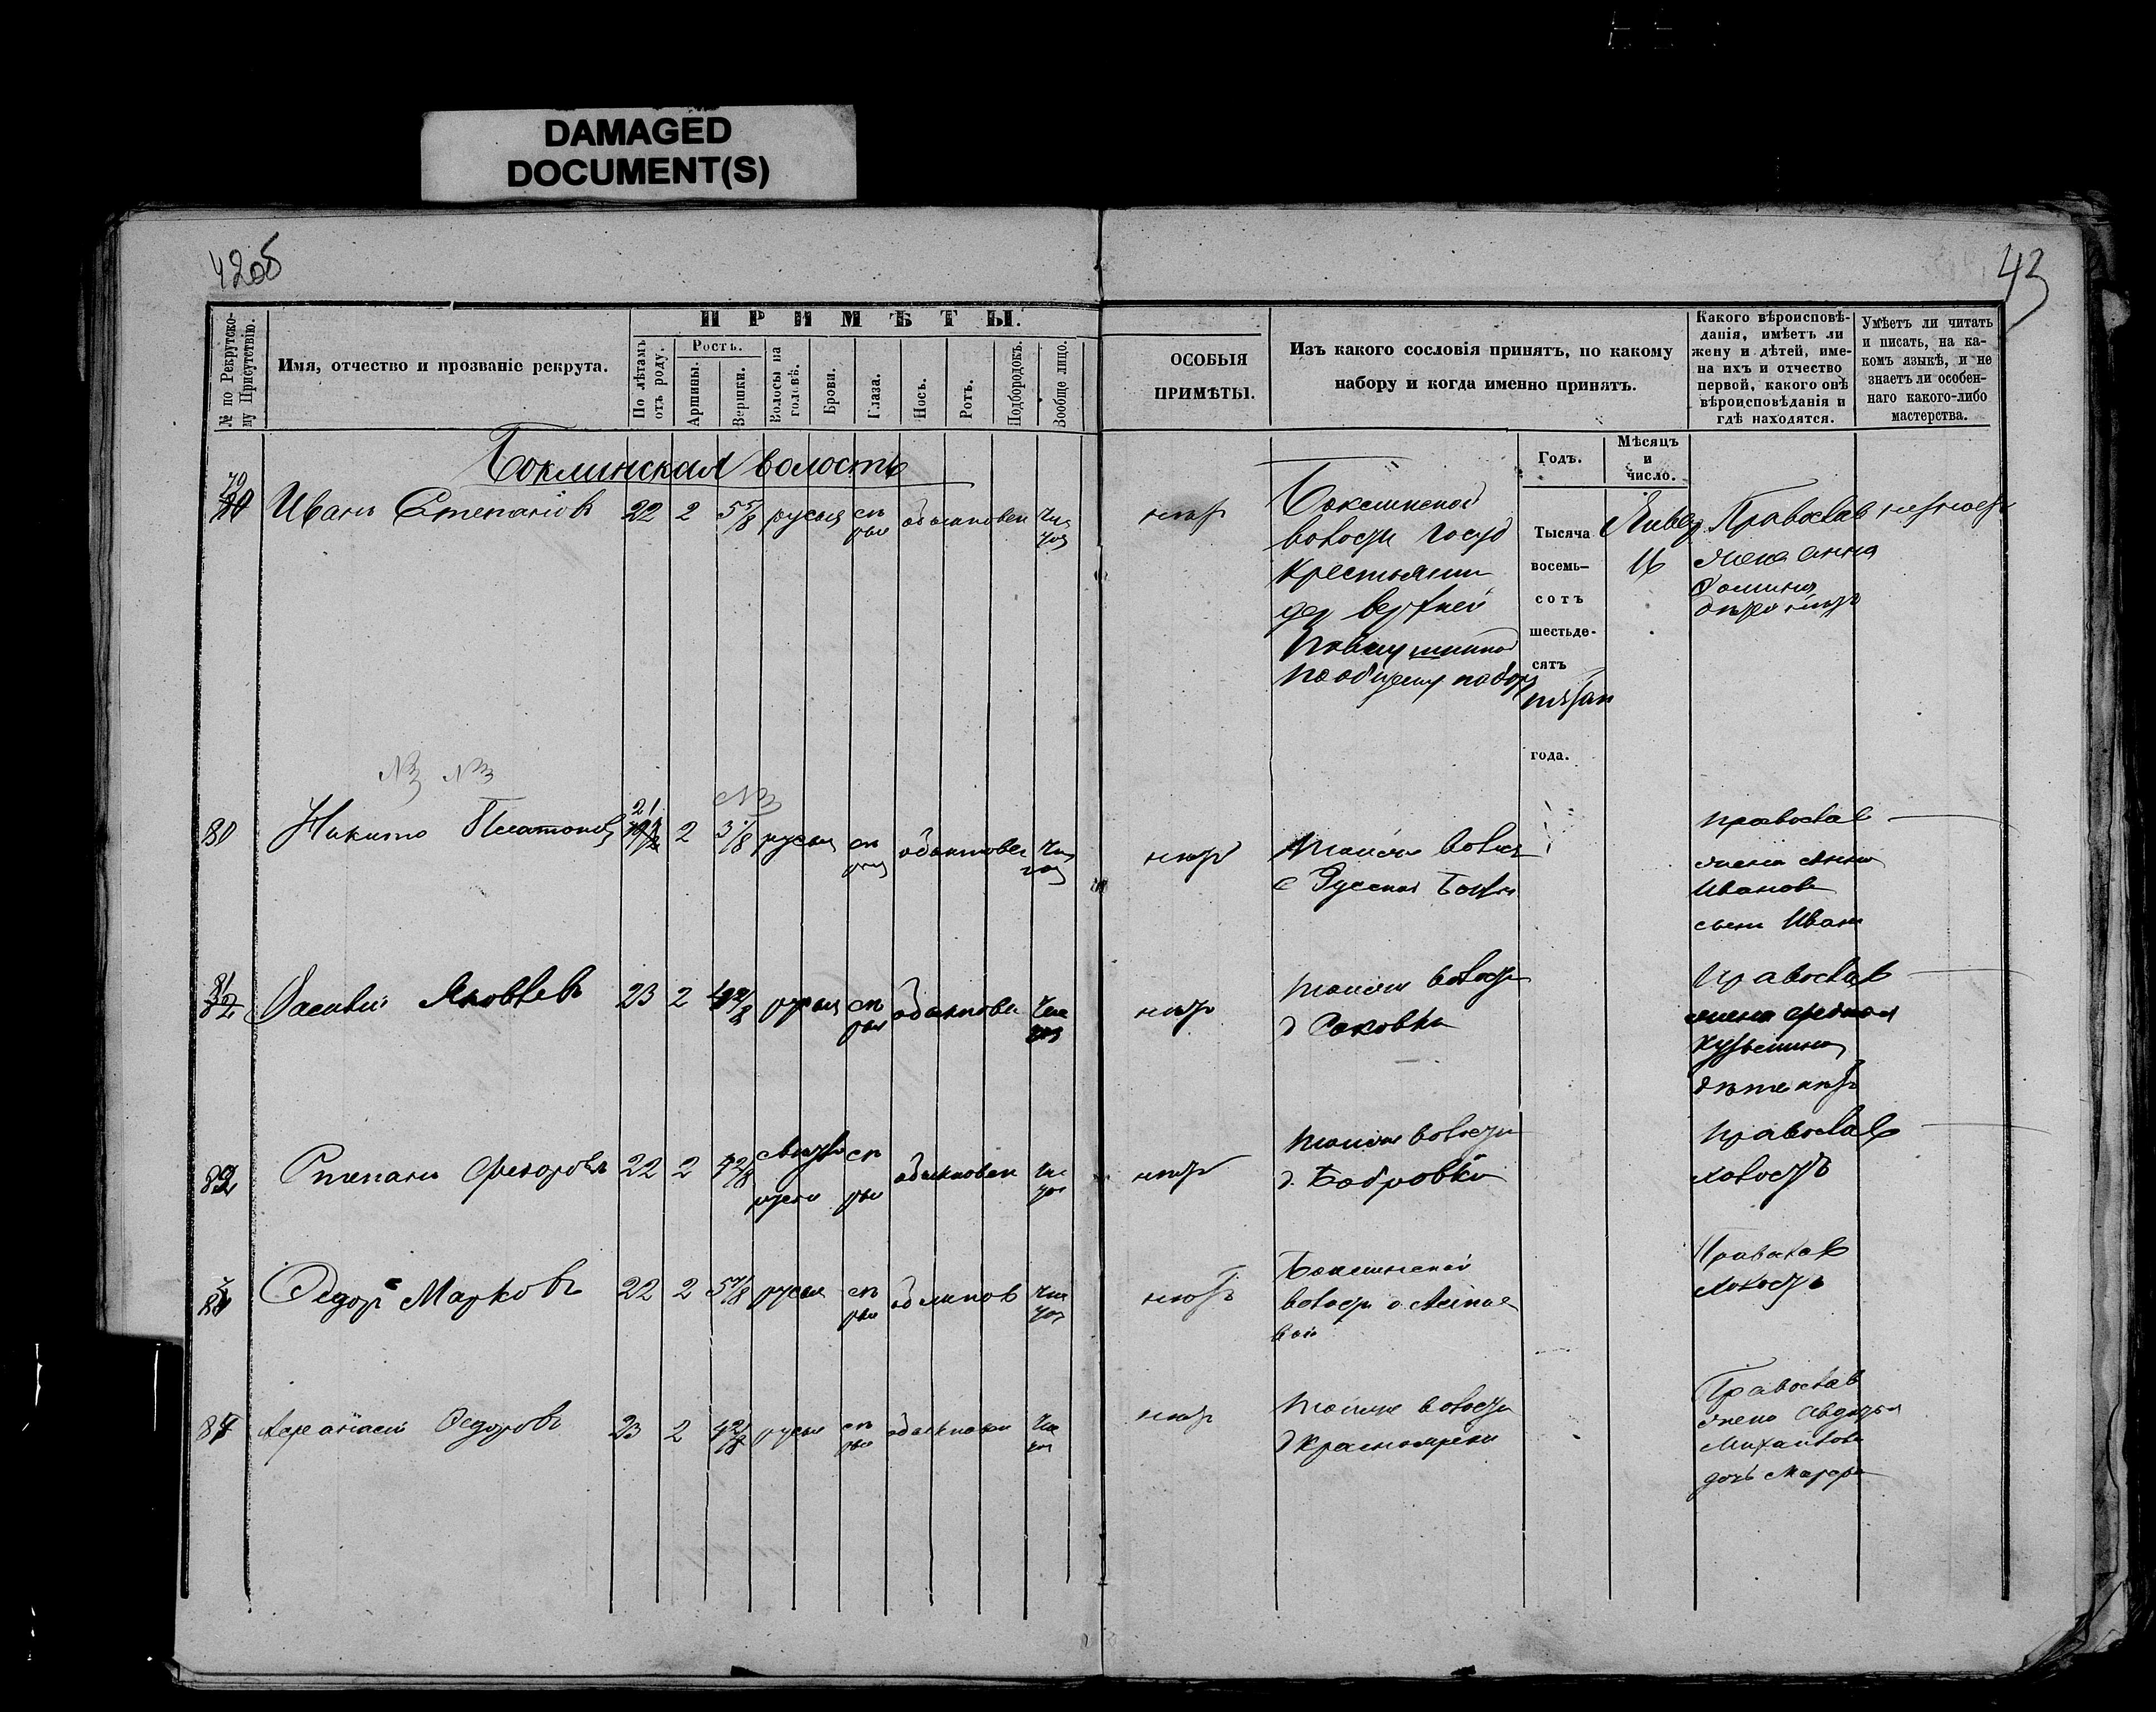 DAMAGED
DOCUMENT(S)
42об
43
№ по Рекрутско-
му Присутствію.
Имя, отчество и прозваніе рекрута.
ПРИМѢТЫ.
По лѣтамъ
отъ роду.
Ростъ.
Аршины.
Вершки.
Волосы на
головѣ.
Брови.
Глаза.
Носъ.
Ротъ.
Подбородокъ.
Вообще лицо.
ОСОБЫЯ
ПРИМѢТЫ.
Изъ какого сословія принятъ, по какому
набору и когда именно принятъ.
Какого вѣроисповѣ-
данія, имѣетъ ли
жену и дѣтей, име-
на ихъ и отчество
первой, какого онѣ
вѣроисповѣданія и
гдѣ находятся.
Умѣетъ ли читать
и писать, на ка-
комъ языкѣ, и не
знаетъ ли особен-
наго какого-либо
мастерства.
Годъ.
Мѣсяцъ
и
число.
Боклинская волость
79
Иванъ Степановъ 22 2 5 5/8 русыя сѣ
рые обыкновен чис
тое
нѣтъ
Боклинской
волости госуд
крестьянинъ
дер Верхней
по общему набору
Тысяча
восемь-
сотъ
шестьде-
сятъ
года.
Январ
16
Православ
жена Анна
Фомина
дѣтей нѣтъ
№3 №3
№3
80 Никита Платоновъ 21 2 3 1/8 русыя сѣ
рые обыкновен чис
тое
нѣтъ
тойже волости
с Русской Боклы
православ
жена Анна
Иванова
сынъ Иванъ
81 Василий Яковлевъ 23 2 русыя сѣ
рые обыкновен чис
тое
нѣтъ
тойже волости
д Соковки
православ
жена
Кузьмина
дѣтей нѣтъ
82 Степанъ Федоровъ 22 2 4 2/8 свѣтло
русые сѣ
рые обыкновен чис
тое
нѣтъ
тойже волости
д. Бобровки
православ
холостъ
83 Федоръ Марковъ 22 2 русыя сѣ
рые обыкнов чис
тое
нѣтъ
Боклинской
волости
Православ
холостъ
84 Афанасий Федоровъ 23 2 4 2/8 русые сѣ
рые обыкновен чис
тое
нѣтъ
тойже волости
д Красноярки
Православ
жена Авдотья
Михайлова
дочь Марфа